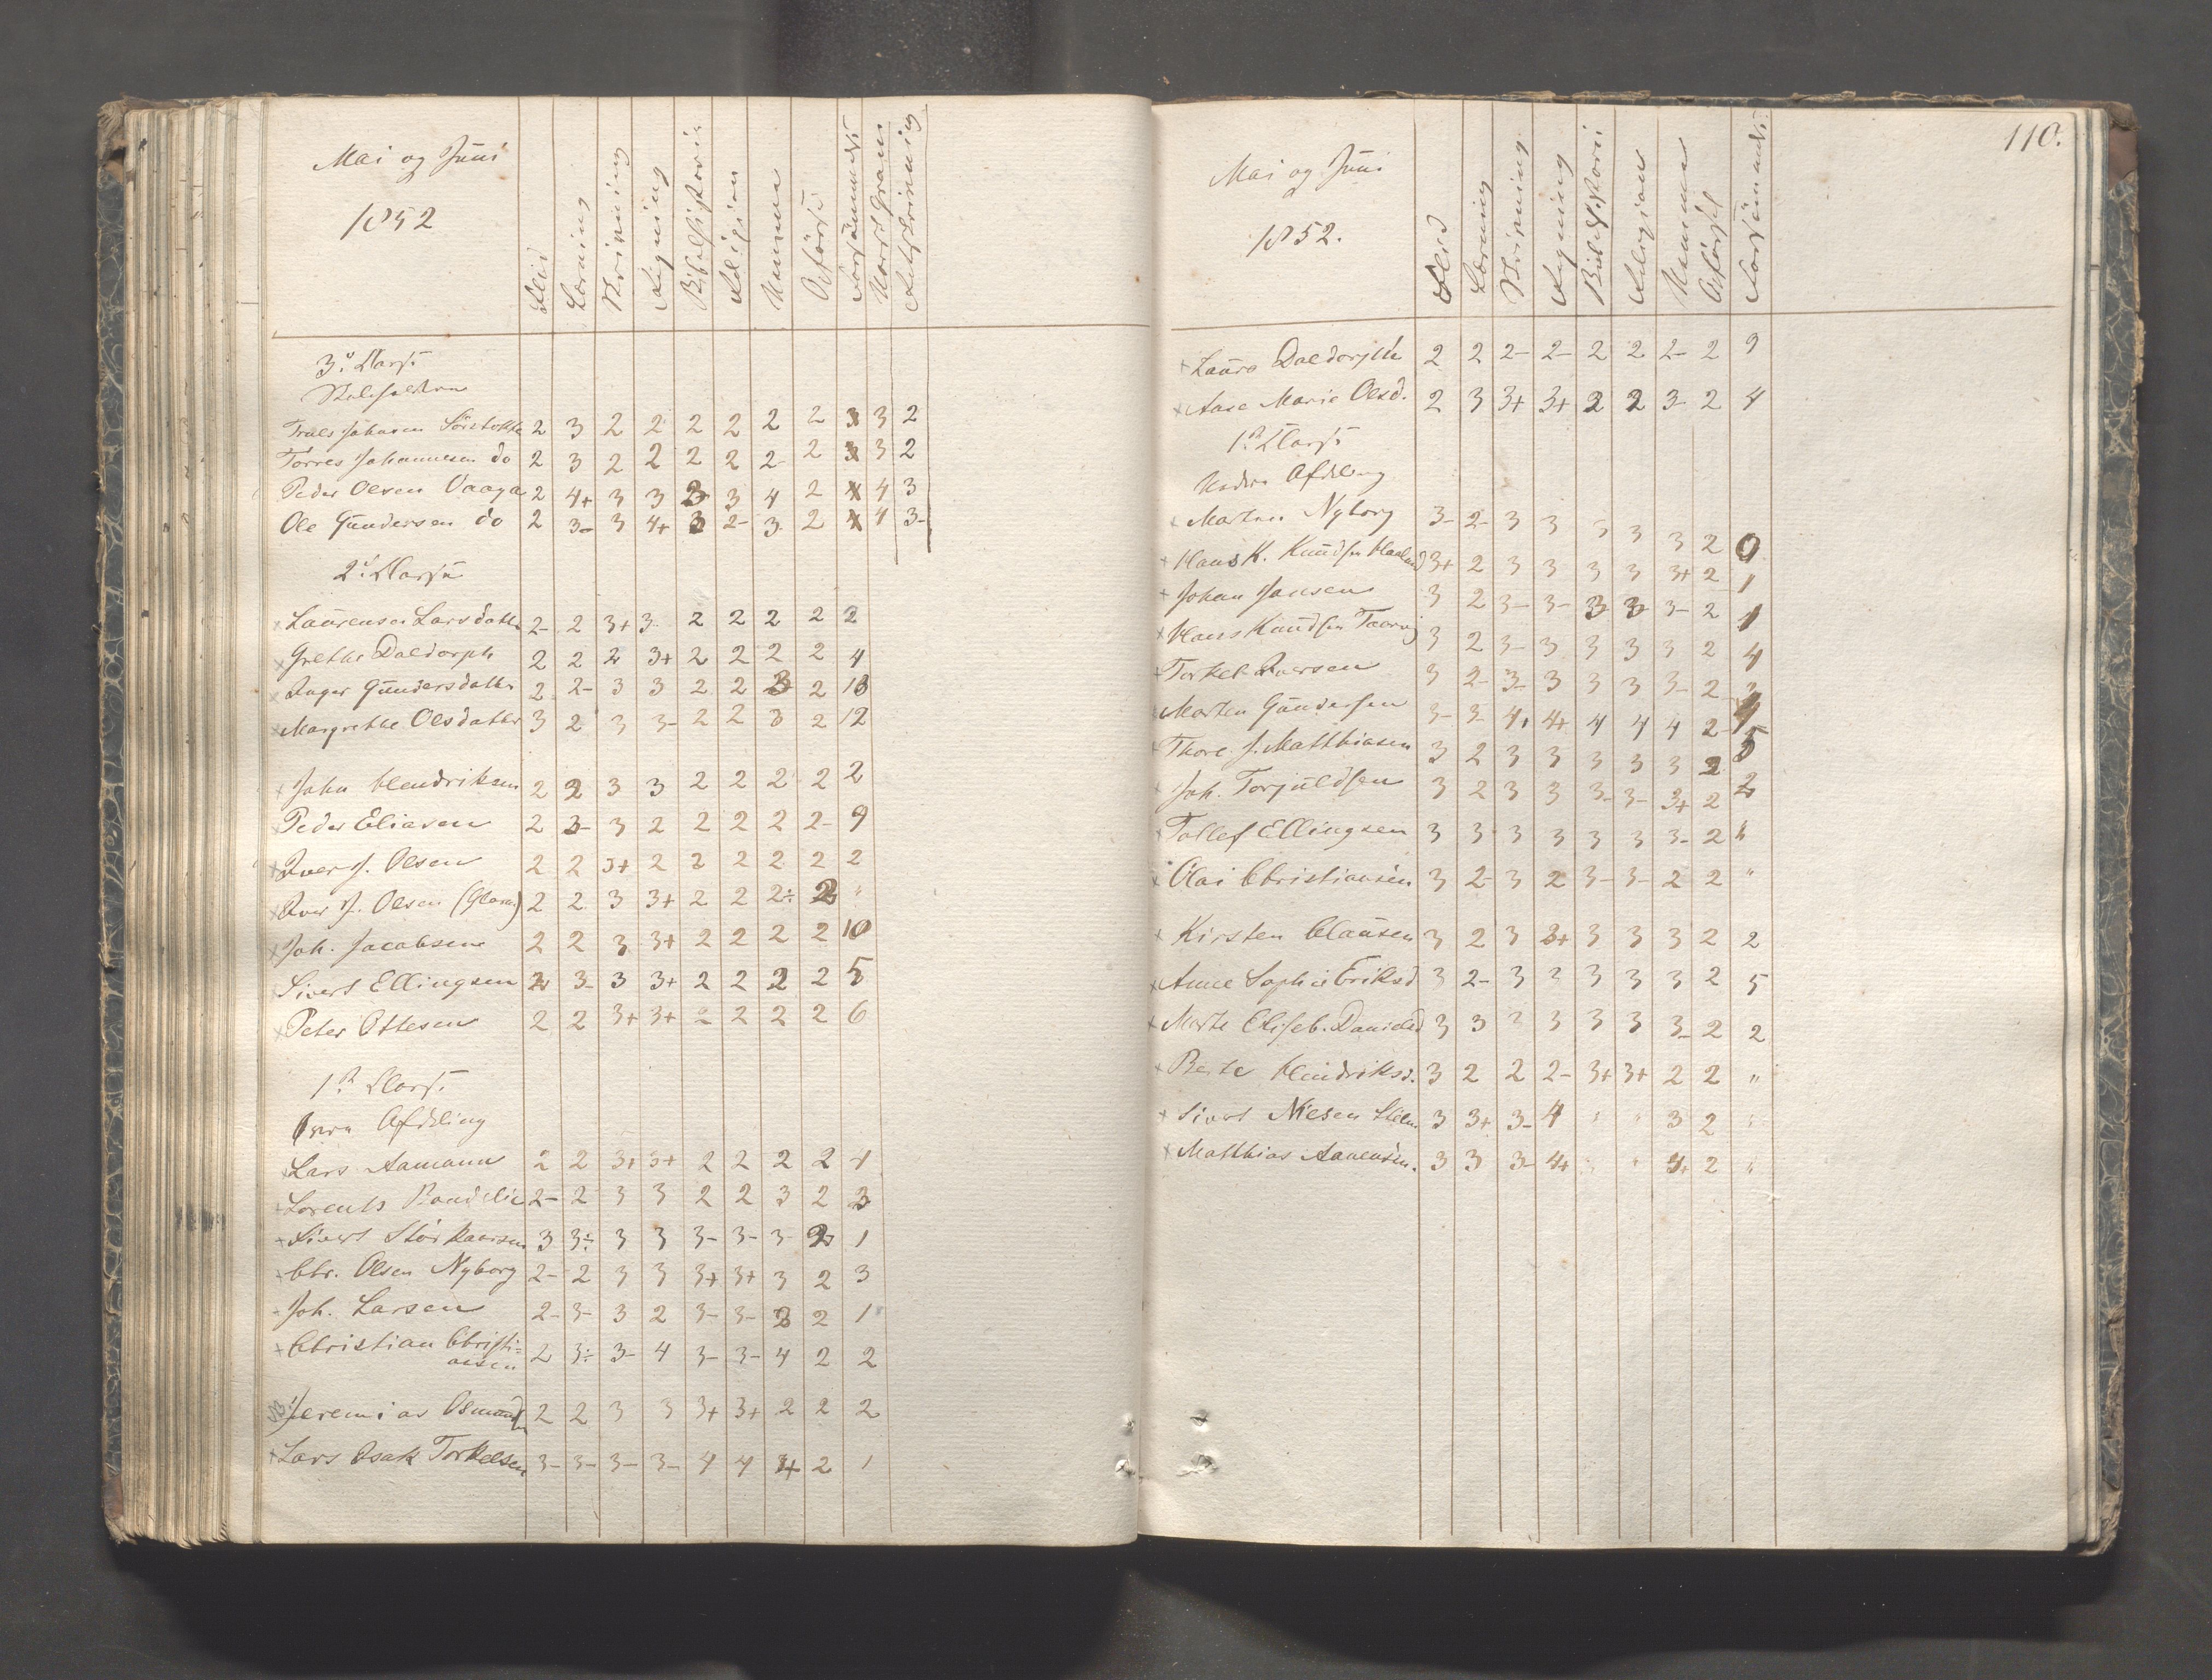 Mai og Juni
1852
Flid
Læsning
Skrivning
Regning
Bibelhistorie
Religion
Opførsel
Forsømmelse
Norsk Gram
Retskrivning
3die Klasse
Trues Johnsen Sörstokke 2 3 2 2 2 2 2 2 3 3 2
Torres Johannesen do 2 3 2 2 2 2 2- 2 3 3 2
Peder Olsen Vaaga 2 4+ 3 3 3 3 4 2 4 4 3
Ole Gundersen do 2 3- 3 4+ 3 2- 3 2 4 4 3-
2den Klasse
Laurense Larsdatter 2- 2 3+ 3- 2 2 2 2 2
Grethe Daldorph 2 2 2 3+ 2 2 2 2 4
Inger Gundersdatter 2 2- 3 3 2 2 3 2 13
Margrethe Olsdatter 3 2 3 3- 2 2 3 2 12
John Hendriksen 2 2 3 3 2 2 2 2 2
Peder Eliasen 2 3- 3 2 2 2 2 2- 9
Iver J. Olsen 2 2 3+ 2 2 2 2 2 2
Iver J. Olsen 2 2 3 3+ 2 2 2÷ 2 "
Joh. Jacobsen 2 2 3 3+ 2 2 2 2 10
Sivert Ellingsen 2 3- 3 3+ 2 2 2 2 5
Peter Ottesen 2 2 3+ 3+ 2 2 2 2 6
1ste Klasse
Øvre Afdeling
Lars Aamann 2 2 3+ 3+ 2 2 2 2 4
Lorents Bandelie 2- 2 3 3 2 2 3 2 3
Sivert Störkaarsen 3 3÷ 3 3 3- 3- 3- 2 1
Chr. Olsen Nyborg 2- 2 3 3 3+ 3+ 3 2 3
Joh. Larsen 2- 3- 3 2 3- 3- 3 2 1
Christian Christi=
ansen 2 3÷ 3- 4 3- 3- 4 2 2
Jeremias Osmundsen 2 2 3 3 3+ 3+ 2 2 2
Lars Isak Torkelsen 3- 3- 3- 3- 4 4 4+ 2 1
110.
Mai og Juni
1852.
Flid
Læsning
Skrivning
Regning
Bibelhistorie
Religion
Opførsel
Forsømmelse
Laura Daldorph 2 2 2- 2- 2 2 2- 2 9
Aase Marie Olsd. 2 3 3+ 3+ 2 2 3- 2 4
1ste Klasse
Nedre Afdeling
Morten Nyborg 3- 2- 3 3 3 3 3 2 0
Hans K. Knudsen Haaland 3+ 2 3 3 3 3 3+ 2 1
Johan Jansen 3 2 3- 3- 3 3 3- 2 1
Hans Knudsen 3 2 3- 3 3 3 3 2 4
Torkel Iversen 3 2- 3- 3 3 3 3- 2
Morten Gundersen 3- 3- 4+ 4+ 4 4 4 2 4
Thore J. Matthiasen 3 2 3 3 3 3 3 2 5
Joh. Torjuldsen 3 2 3 3 3- 3- 3+ 2 2
Tollef Ellingsen 3 3 3 3 3 3 3- 2 "
Olai Christiansen 3 2- 3 2 3- 3- 2 2 "
Kirsten Clausen 3 2 3 3+ 3 3 3 2 2
Anne Sophie Eriksd 3 2- 3 3 3 3 3 2 5
Marte Eliseb. Danielsd 3 3 3 3 3 3 3- 2 2
Berte Hendriksd. 3 2 2 2- 3+ 3+ 2 2 "
Sivert Nilsen 3 3+ 3- 4 " " 3 2 "
Matthias Aanensen. 3 3 3- 4+ " " 4+ 2 "